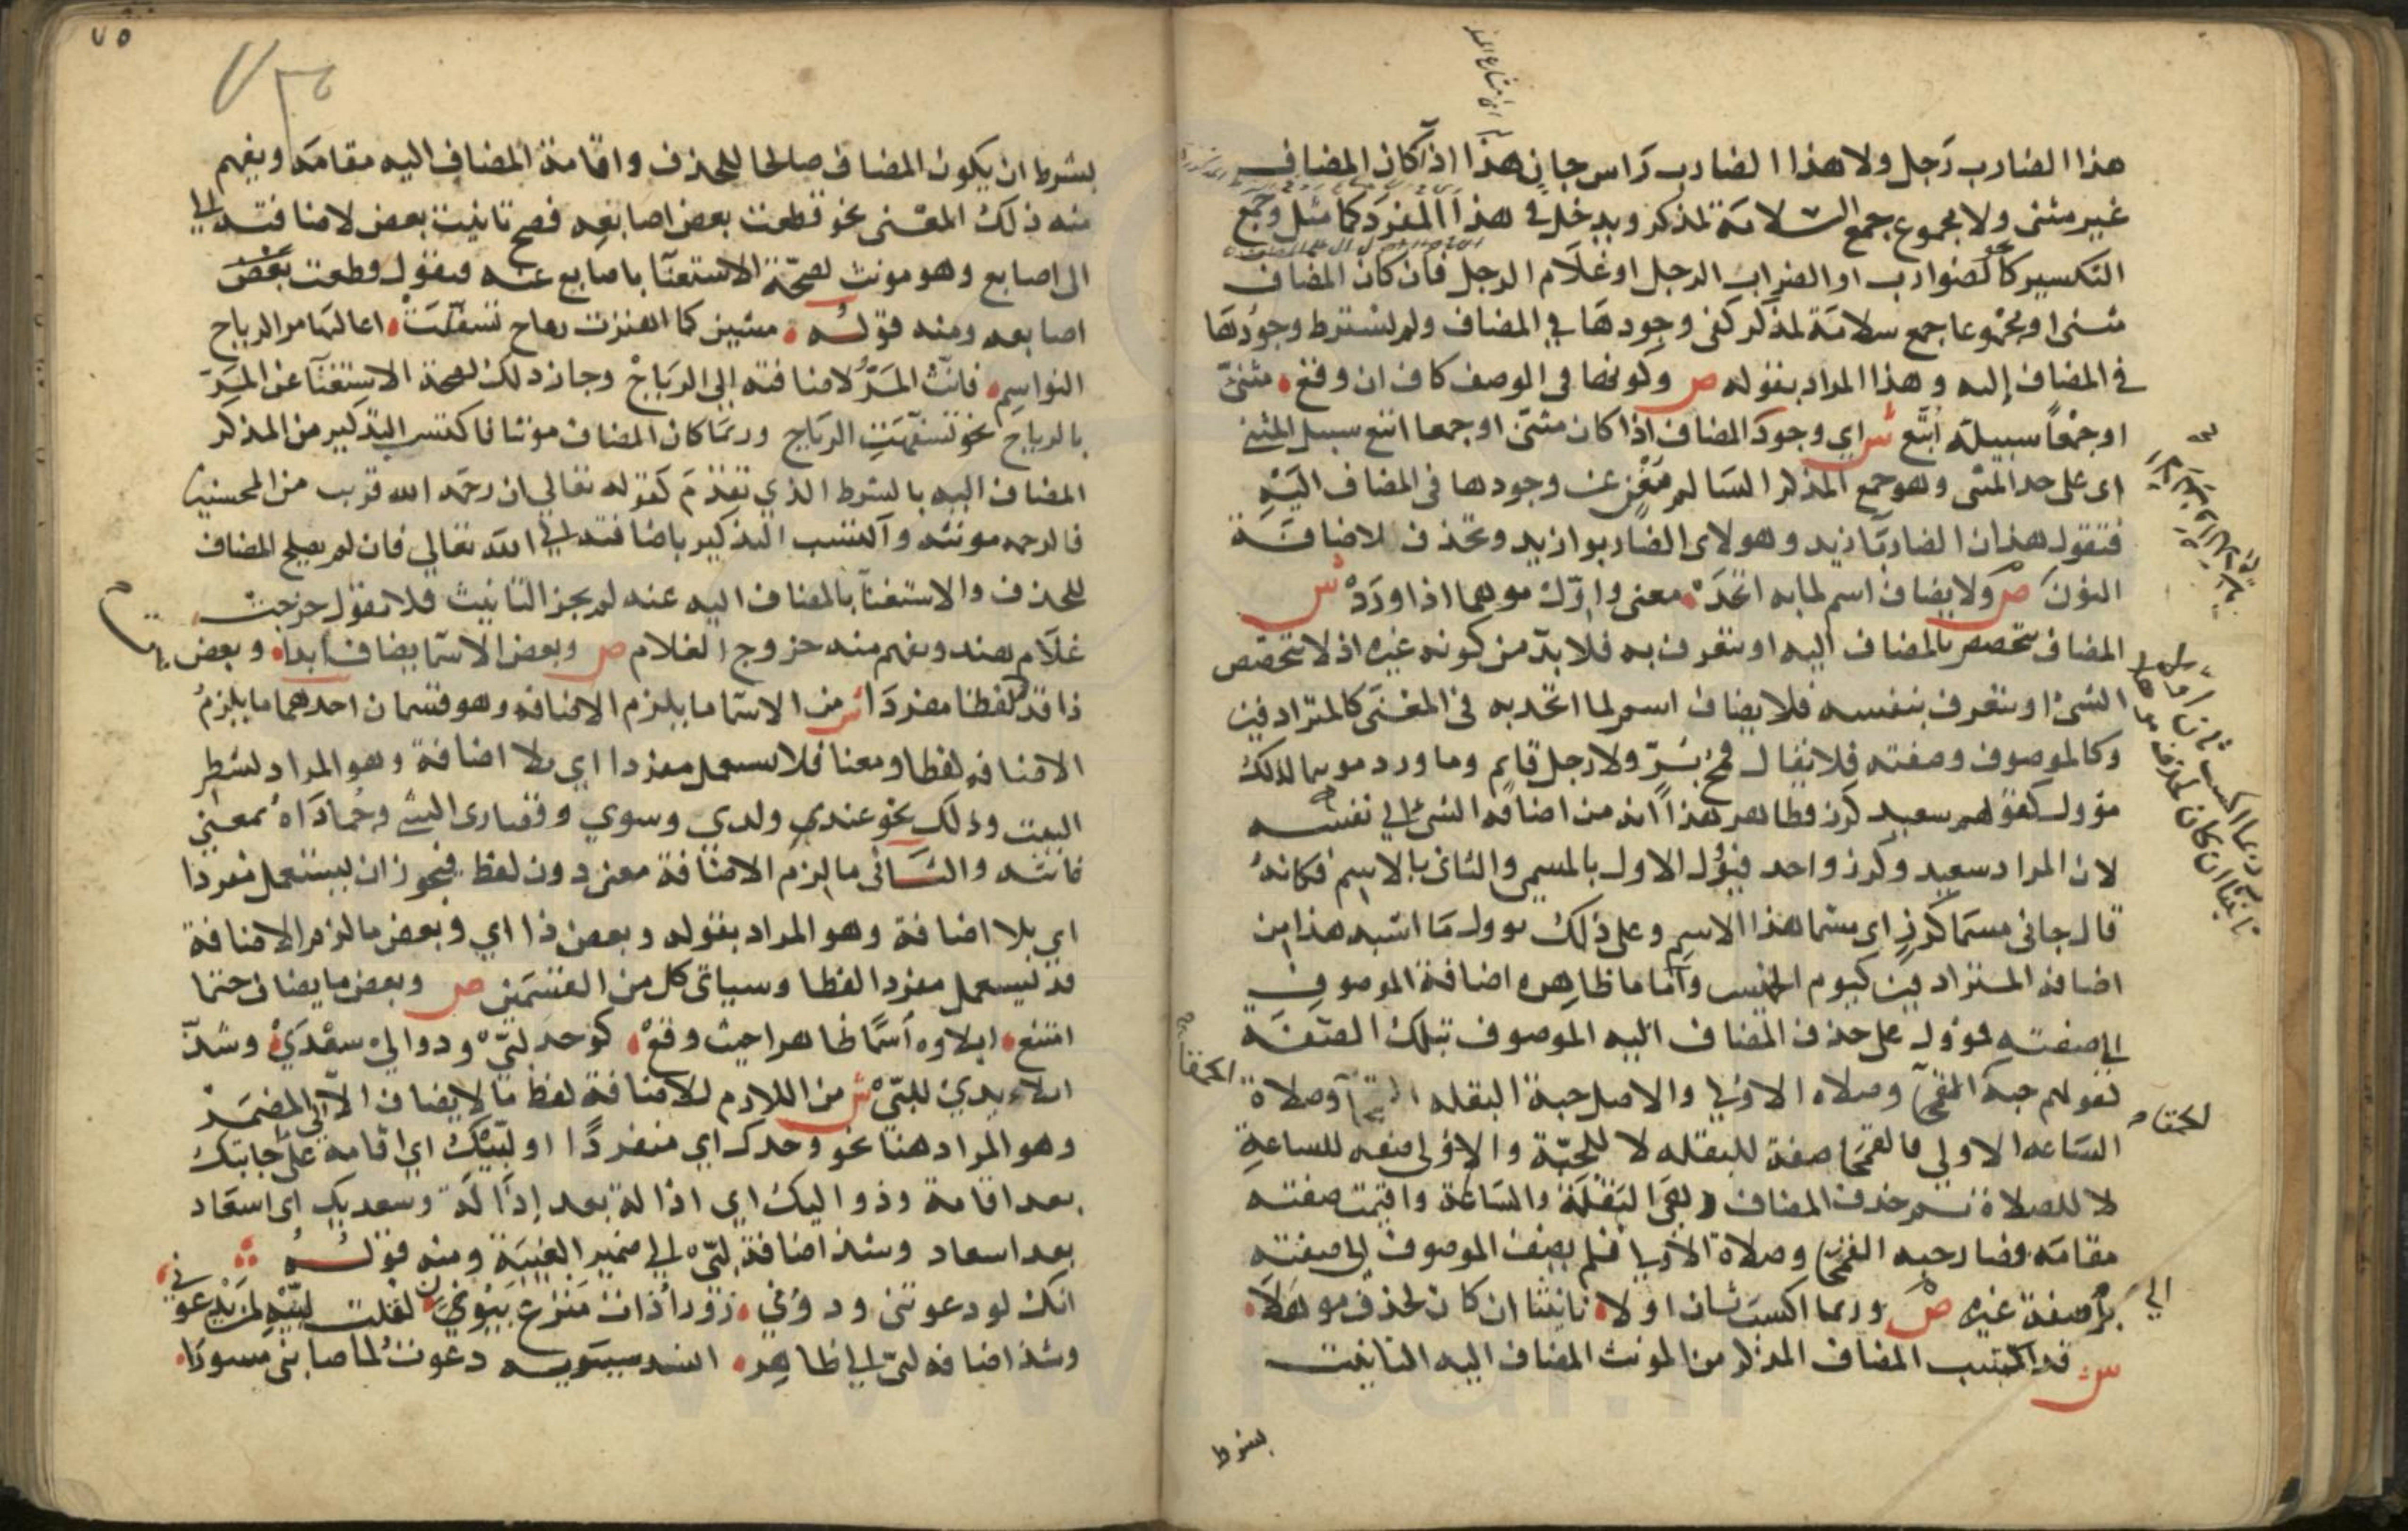 هذا الضارب رجل ولا هذا الضارب راس جان هذا اذا كان المضاف
غير مثنى ولا مجموع جمع السلامة لمذكر ويدخل في هذا المفرد كما مثل وجمع
التكسير نحو الضوارب او الضراب الرجل او غلام الرجل فان كان المضاف
مثنى او مجموعا جمع سلامة لمذكر كفى وجودها في المضاف ولم يشترط وجودها
في المضاف اليه وهذا المراد بقوله ص وكونها في الوصف كاف ان وقع مثنى
او جمعا سبيله اتبع ش اي وجود المضاف اذا كان مثنى او جمعا اتبع سبيل المثنى
اى على حد المثنى وهو جمع المذكر السالم مغن عن وجودها فى المضاف اليه
فتقول هذان الضاربا زيد وهولاى الضاربوا زيد وتحذف للاضافة
النون ص ولا يضاف اسم لما به اتحد معنى واول موهما اذا ورد ش
المضاف يتخصص بالمضاف اليه او يتعرف به فلا بد من كونه غيره اذ لا يتخصص
الشئ او يتعرف بنفسه فلا يضاف اسم لما اتحد به فى المعنى كالمترادفين
وكالموصوف وصفته فلا يقال قمح بر ولا رجل قايم وما ورد موهما لذلك
مؤول كقولهم سعيد كرز فظاهر هذا انه من اضافة الشئ الى نفسه
لان المراد سعيد وكرز واحد فيؤل الاول بالمسمى والثانى بالاسم فكانه
قال جانى مسما كرز اى مسما هذا الاسم وعلى ذلك يوول ما اشبه هذا من
اضافة المترادفين كيوم الخميس واما ما ظاهره اضافة الموصوف
الى صفته فمؤول على حذف المضاف اليه الموصوف بتلك الصفة
كقولهم حبة الحمقا وصلاه الاولى والاصل حبة البقله الحمقا وصلاة
الساعه الاولى فالحمقا صفة للبقله لا للحبة والاولى صفه للساعة
لا للصلاة ثم حذف المضاف اليه وهو البقلة والساعة واقيمت صفته
مقامه فصار حبه الحمقا وصلاة الاولى فلم يضف الموصوف الى صفته
بل الى صفة غيره ص وربما اكسب ثان اولا تانيثا ان كان لحذف موهلا
ش قد اكتسب المضاف المذكر من المونث المضاف اليه التانيث
بشرط
الحمقا
٧٥
بشرط ان يكون المضاف صالحا للحذف واقامة المضاف اليه مقامه ويفهم
منه ذلك المعنى نحو قطعت بعض اصابعه فصح تانيث بعض لاضافته
الى اصابع وهو مونث لصحة الاستغنا باصابع عنه فتقول قطعت بعض
اصابعه ومنه قوله مشين كما اهتزت رماح تسفهت اعاليها مر الرياح
النواسم فانث المر لاضافته الى الرياح وجاز ذلك لصحة الاستغنا عن المر
بالرياح نحو تسفهت الرياح وربما كان المضاف مونثا فاكتسب التذكير من المذكر
المضاف اليه بالشرط الذي تقدم كقوله تعالى ان رحمه الله قريب من المحسنين
فالرحمه مونثه واكتسب التذكير باضافته الى الله تعالى فان لم يصلح المضاف
للحذف والاستغنا بالمضاف اليه عنه لم يجز التانيث فلا تقول خرجت
غلام هند ويفهم منه خروج الغلام ص وبعض الاسما يضاف ابدا وبعض
ذا قد لفظا مفردا ش من الاسما ما يلزم الاضافه وهو قسمان احدهما ما يلزم
الاضافه لفظا ومعنا فلا يستعمل مفردا اي بلا اضافة وهو المراد بشطر
البيت وذلك نحو عندي ولدي وسوي وقصارى الشئ وحماداه بمعنى
غايته والثانى ما لزم الاضافة معنى دون لفظ فيجوز ان يستعمل مفردا
اي بلا اضافة وهو المراد بقوله وبعض ذا اي وبعض ما لزم الاضافة
قد يستعمل مفردا لفظا وسياتى كل من القسمين ص وبعض ما يضاف حتما
امتنع ايلاوه اسما ظاهرا حيث وقع كوحد لبى ودوالى سعدي وشذ
ايلاء يدي للبى ش من اللازم للاضافة لفظا ما لا يضاف الا الى المضمر
وهو المراد هنا نحو وحدك اي منفردا او لبيك اي اقامة على اجابتك
بعد اقامة ودواليك اي ادالة بعد ادالة وسعديك اى اسعاد
بعد اسعاد وشذ اضافة لبى الى ضمير الغيبة ومنه قوله
انك لو دعوتنى ودونى زورا ذات منزع بيون لقلت لبيه لمن يدعونى
وشذ اضافه لبى الى ظاهر انشد سيبويه دعوت لما صابنى مسورا